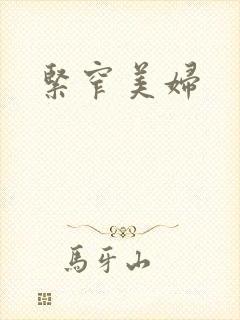 緊窄美婦
馬牙山